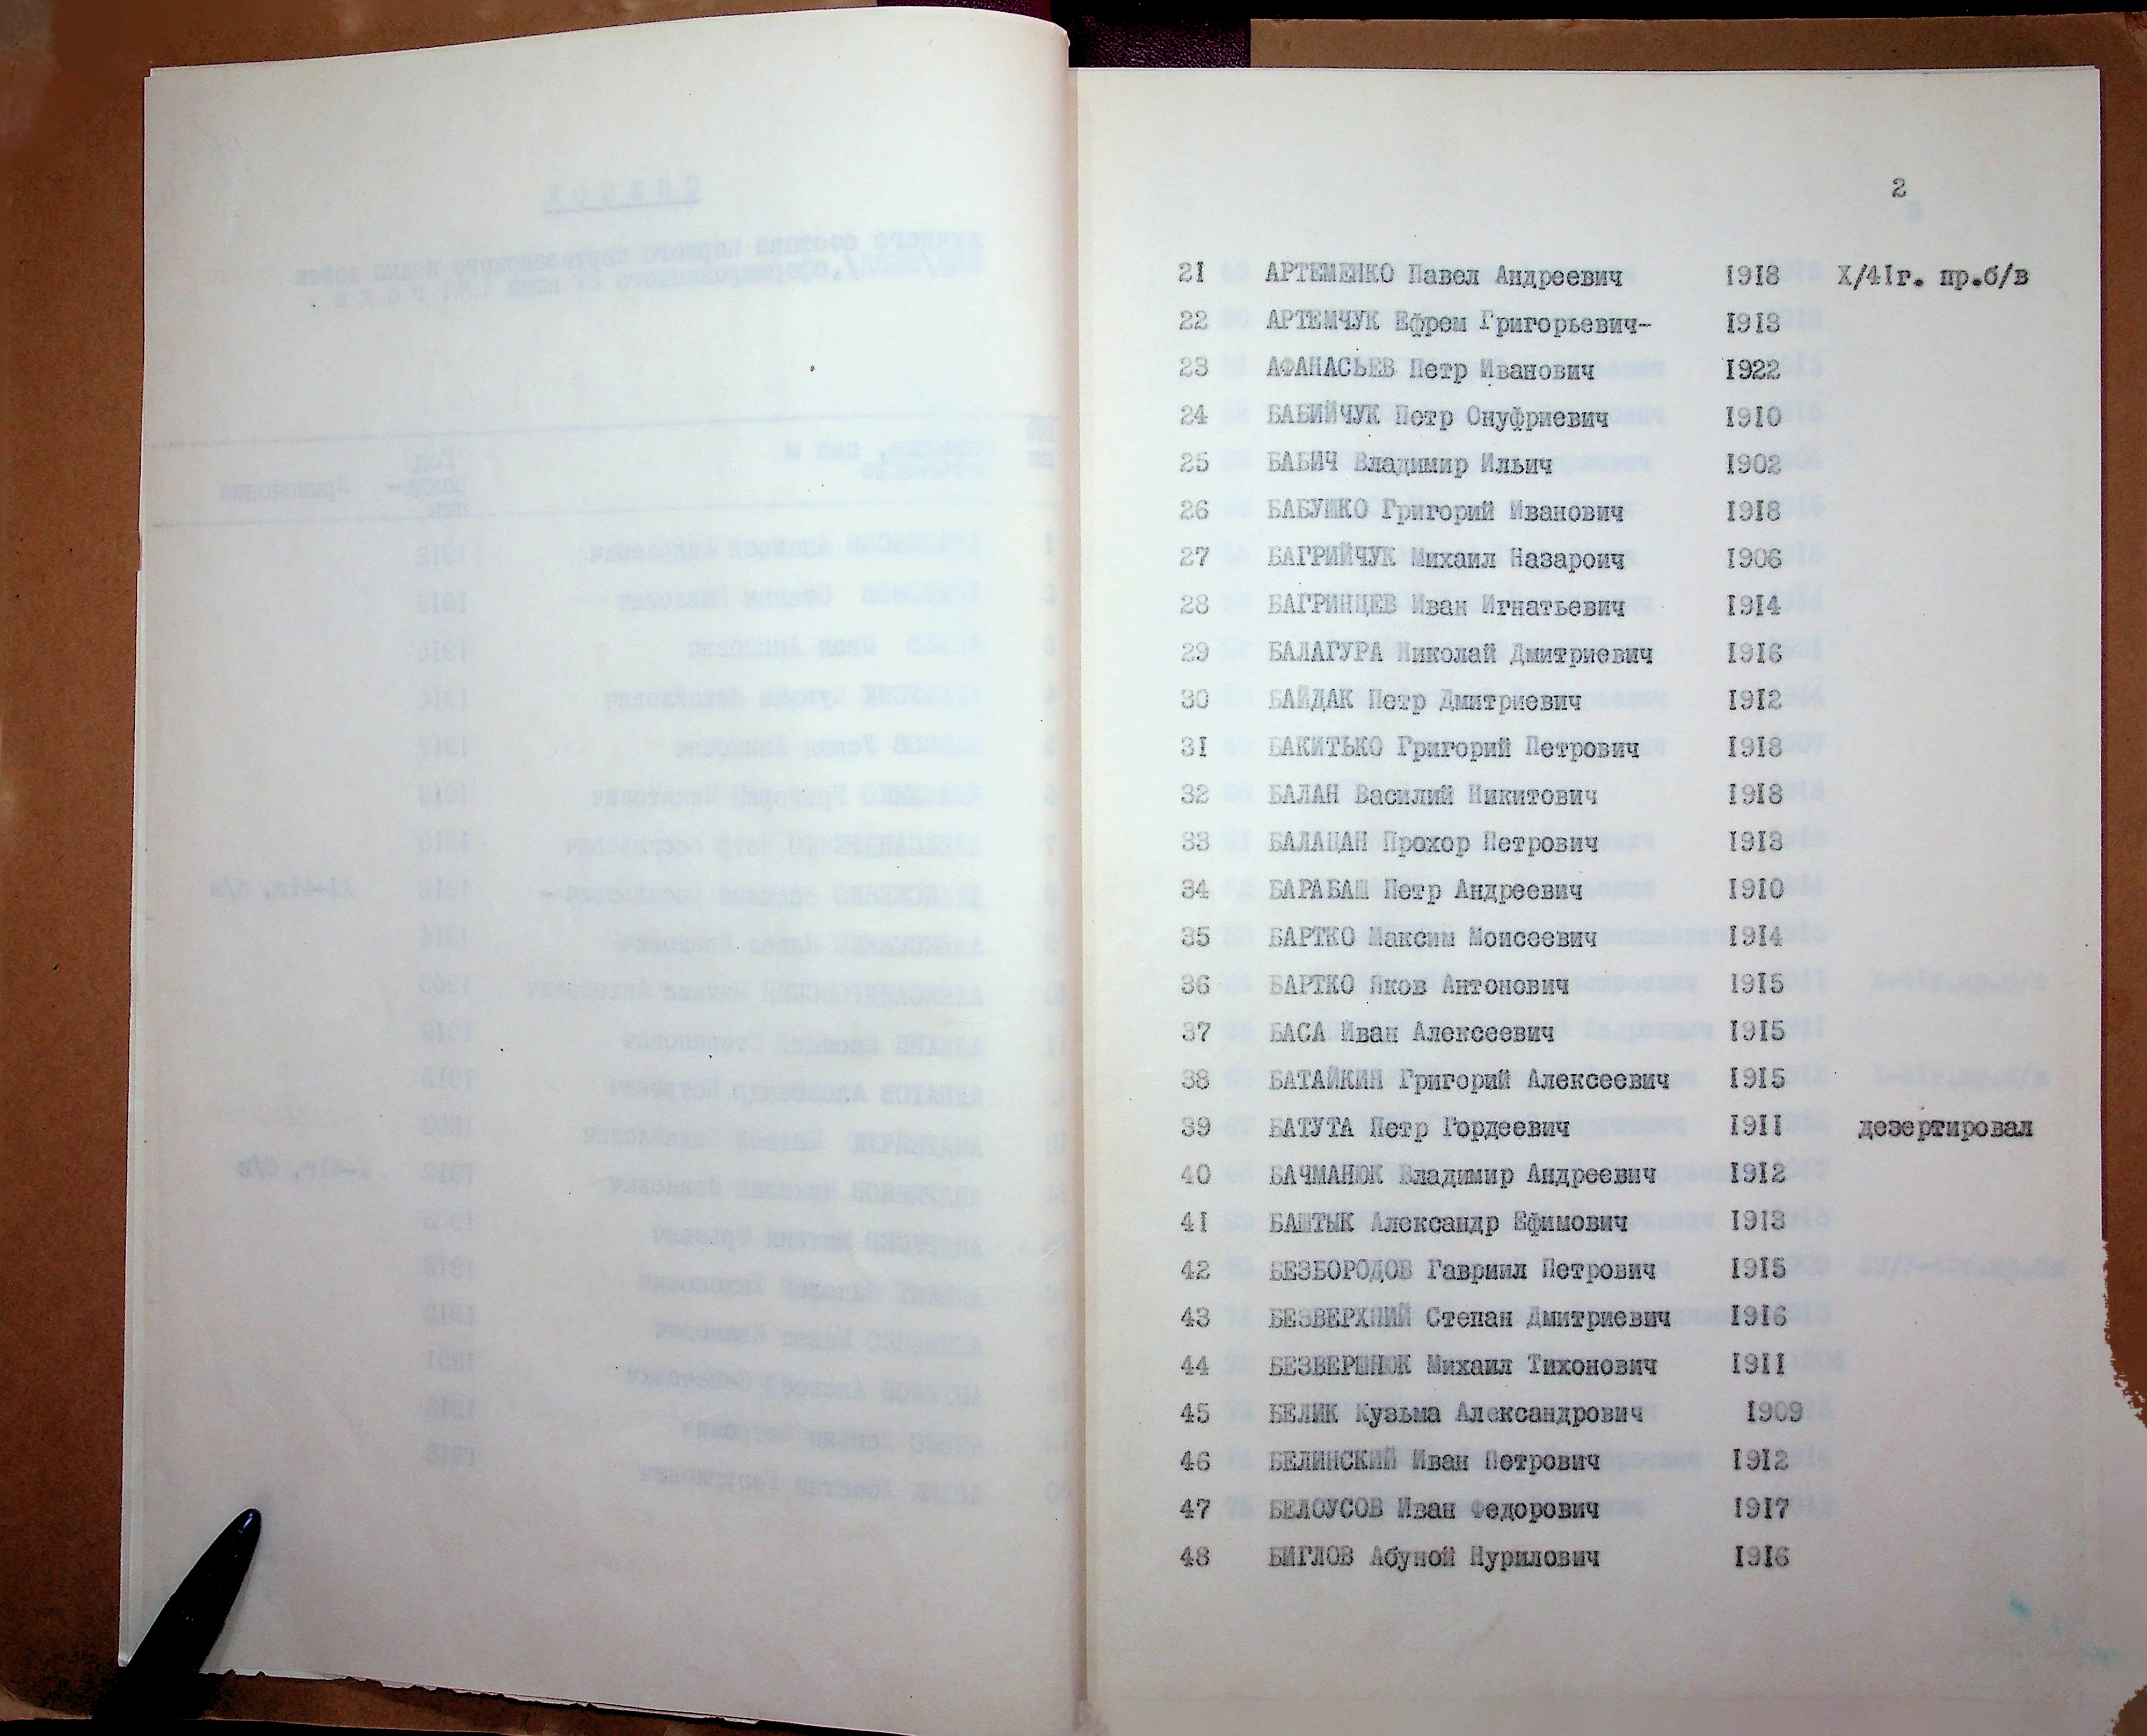 2
21 АРТЕМЕНКО Павел Андреевич 1918 X/41г. пр.б/в
22 АРТЕМЧУК Ефрем Григорьевич- 1913
23 АФАНАСЬЕВ Петр Иванович 1922
24 БАБИЙЧУК Петр Онуфриевич 1910
25 БАБИЧ Владимир Ильич 1902
26 БАБУШКО Григорий Иванович 1918
27 БАГРИЙЧУК Михаил Назароич 1906
28 БАГРИНЦЕВ Иван Игнатьевич 1914
29 БАЛАГУРА Николай Дмитриевич 1916
30 БАЙДАК Петр Дмитриевич 1912
31 БАКИТЬКО Григорий Петрович 1918
32 БАЛАН Василий Никитович 1918
33 БАЛАЦАН Прохор Петрович 1913
34 БАРАБАШ Петр Андреевич 1910
35 БАРТКО Максим Моисеевич 1914
36 БАРТКО Яков Антонович 1915
37 БАСА Иван Алексеевич 1915
38 БАТАЙКИН Григорий Алексеевич 1915
39 БАТУТА Петр Гордеевич 1911 дезертировал
40 БАЧМАНЮК Владимир Андреевич 1912
41 БАШТЫК Александр Ефимович 1913
42 БЕЗБОРОДОВ Гавриил Петрович 1915
43 БЕЗВЕРХНИЙ Степан Дмитриевич 1916
44 БЕЗВЕРШНЮК Михаил Тихонович 1911
45 БЕЛИК Кузьма Александрович 1909
46 БЕЛИНСКИЙ Иван Петрович 1912
47 БЕЛОУСОВ Иван Федорович 1917
48 БИГЛОВ Абуной Нурилович 1916